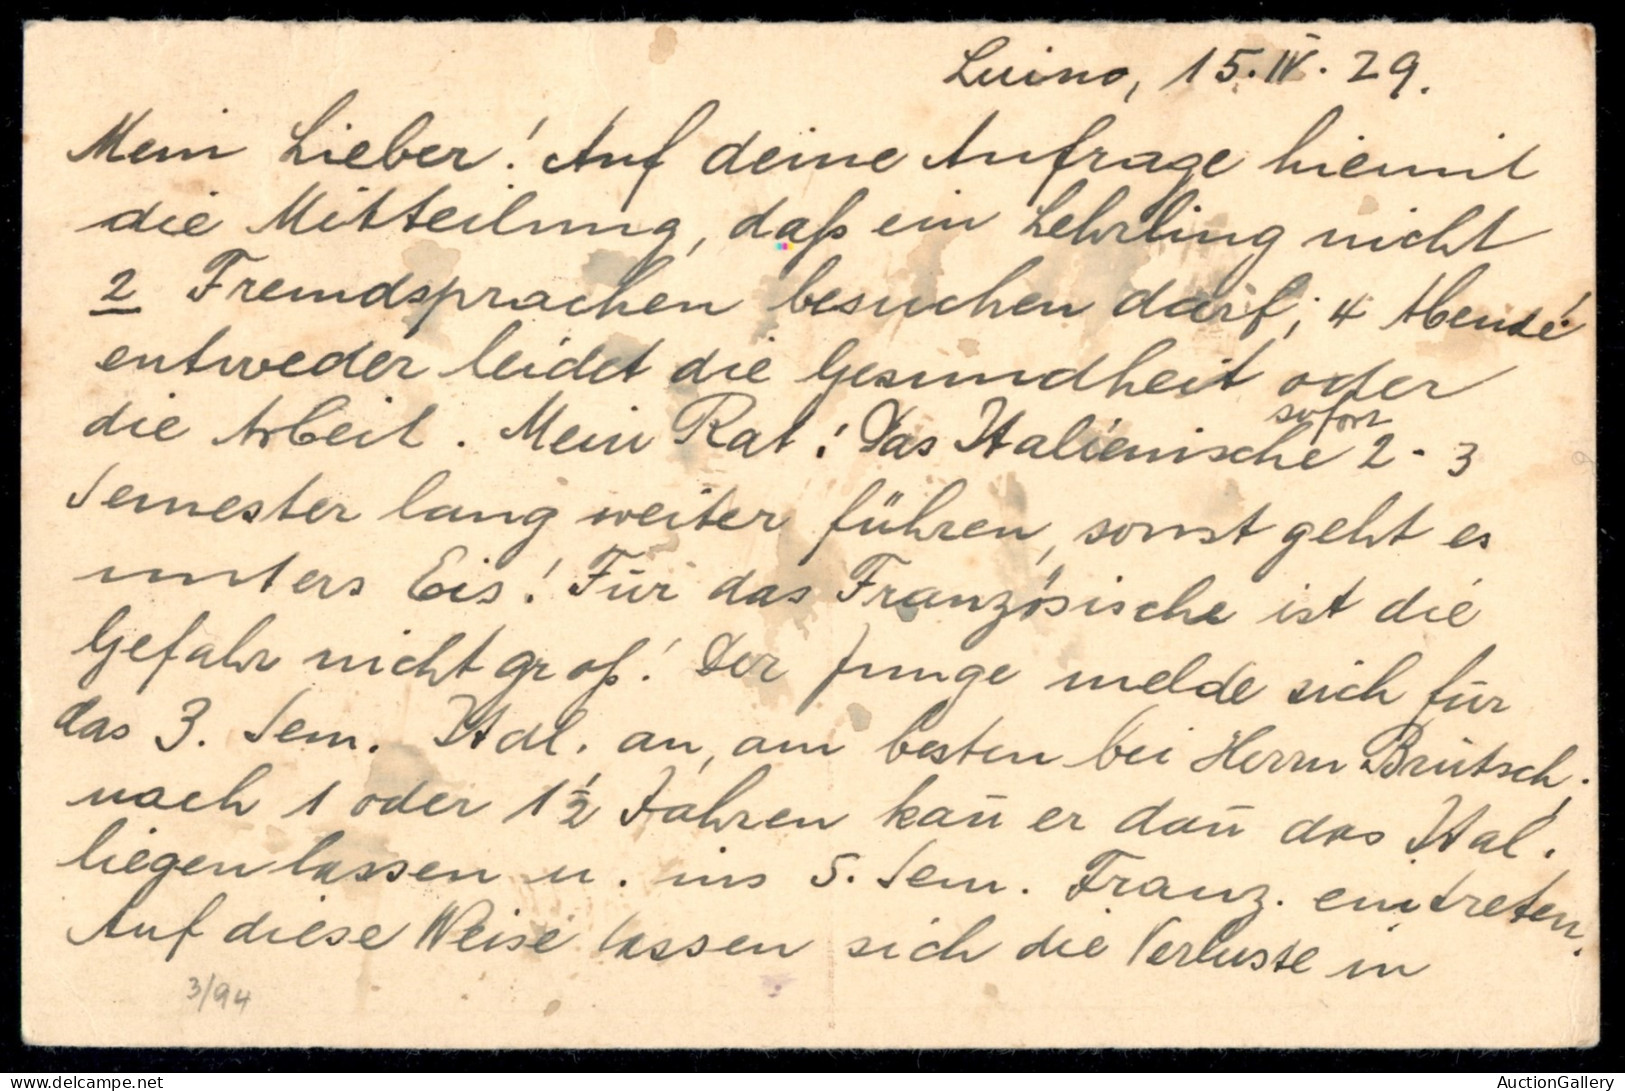 Luino, 15. IV. 29.
Mein Lieber! Auf deine Anfrage hiemit
die Mitteilung, daß ein Lehrling nicht
2 Fremdsprachen besuchen darf; 4 Abende!
entweder leidet die Gesundheit oder
die Arbeit. Mein Rat: Das Italienische sofort 2-3
Semester lang weiter führen, sonst geht es
unters Eis! Für das Französische ist die
Gefahr nicht groß! Der Junge melde sich für
das 3. Sem. Ital. an, am besten bei Herrn Brütsch;
nach 1 oder 1½ Jahren kan̄ er dan̄ das Ital.
liegen lassen u. ins 5. Sem. Franz. eintreten.
Auf diese Weise lassen sich die Verluste in
3/94
AuctionGallery